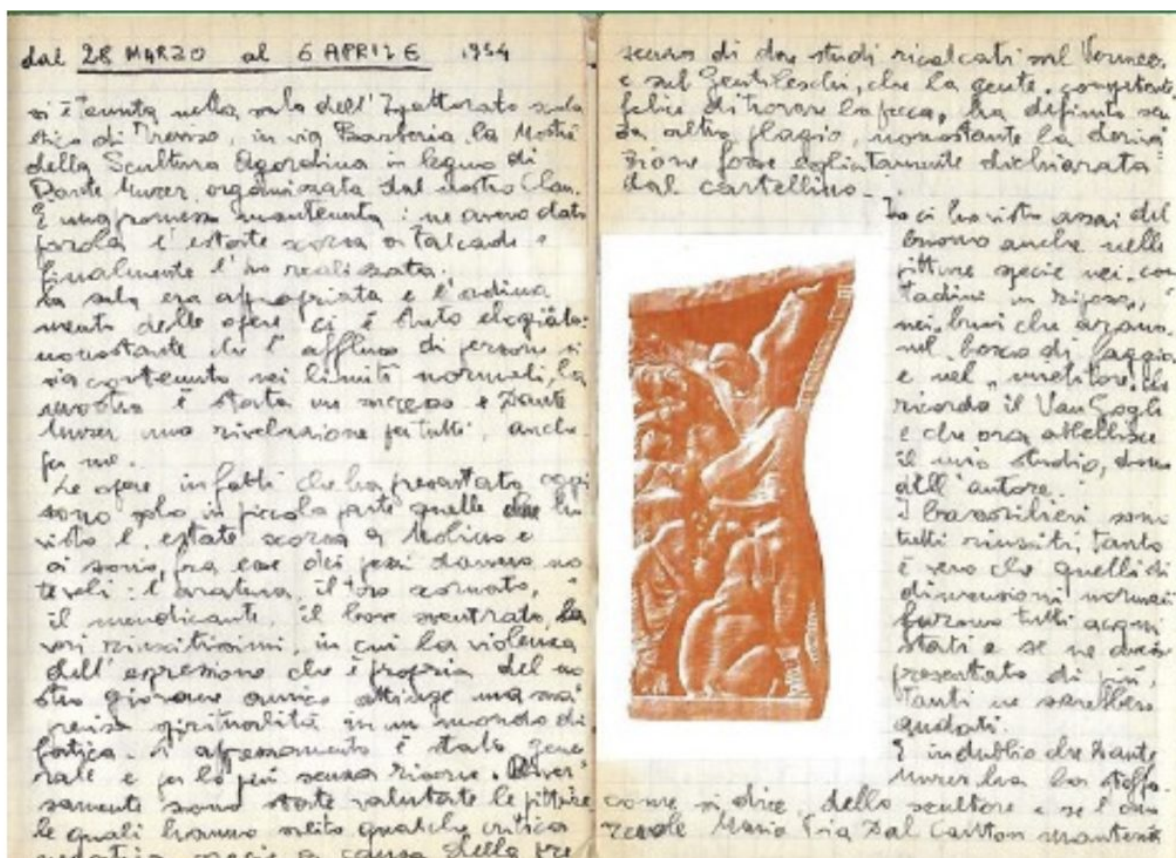 dal 28 MARZO al 6 APRILE 1954
si è tenuta nella sala dell'Ispettorato scola
stico di Treviso, in via la Mostra
della Scultura Agordina in legno di
Dante Murer organizzata dal nostro Clan.
È una promessa mantenuta: ne avevo dato
parola l'estate scorsa a Falcade e
finalmente l'ho realizzata.
La sala era appropriata e l'ordina
mento delle opere ci è stato elogiato:
nonostante che l'afflusso di persone si
sia contenuto nei limiti normali, la
mostra è stata un successo e Dante
Murer una rivelazione per tutti, anche
per me.
Le opere infatti che ha presentato oggi
sono solo in piccola parte quelle che ho
visto l'estate scorsa a Molino e
ci sono, fra esse dei pezzi davvero no
tevoli: l'aratura, il toro scornato,
il mendicante, il bove sventrato, la
vori riuscitissimi, in cui la violenza
dell'espressione che è propria del no
stro giovane amico attinge una sua
precisa spiritualità in un mondo di
fatica. L'apprezzamento è stato gene
rale e per lo più senza riserve. Diver
samente sono state valutate le pitture
le quali hanno subito qualche critica
negativa specie a causa della pre
senza di due studi ricalcati sul Vermeer
e sul Gentileschi, che la gente, competente,
felice di trovare la pecca, ha definito sen
za altro plagio, nonostante la deriva
zione fosse esplicitamente dichiarata
dal cartellino.
Io ci ho visto assai del
buono anche nelle
pitture specie nei "con
tadini in riposo",
nei buoi che arano
nel bosco di faggio
e nel "mietitore" che
ricorda il Van Gogh
e che ora abbellisce
il mio studio, dono
dell'autore.
I bassorilievi sono
tutti riusciti, tanto
è vero che quelli di
dimensioni normali
furono tutti acqui
stati e se ne avesse
presentato di più,
tanti ne sarebbero
andati.
È indubbio che Dante
Murer ha la stoffa
come si dice, dello scultore e se l'ono
revole Maria Pia Dal Canton manterrà